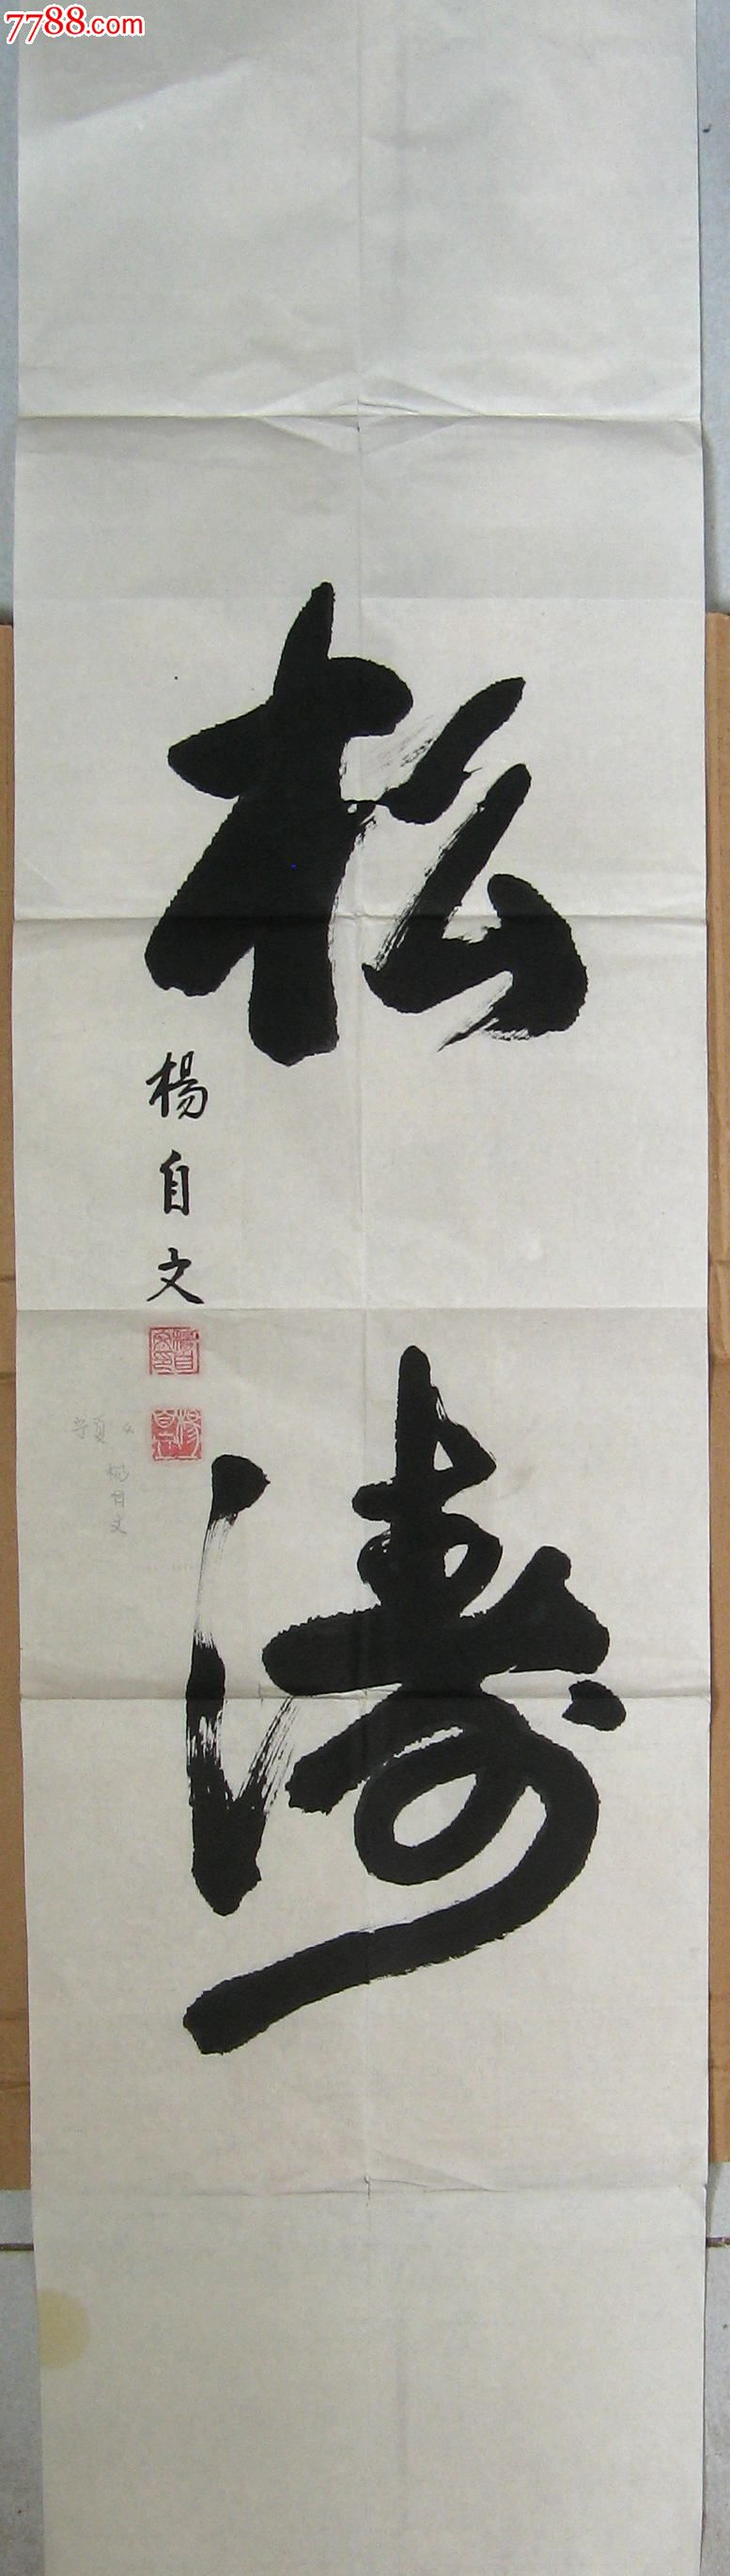 7788.com
松濤
楊自文
楊自文